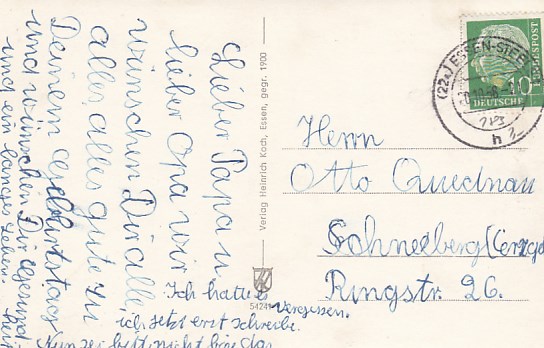 Lieber Papa u
lieber Opa wir
wünschen Dir alle,
alles, alles gute zu
Deinem Geburtstag
und wünschen Dir Gesund
und ein langes Leben.
Ich hatte
vergessen.
ich jetzt erst schreibe.
nicht böse das
Verlag Heinrich Koch, Essen, gegr. 1900
(22a) ESSEN-STEE
h
10
DEUTSCHE
BUNDESPOST
Herrn
Otto Quednau
Schneeberg (Erzgeb
Ringstr. 26.